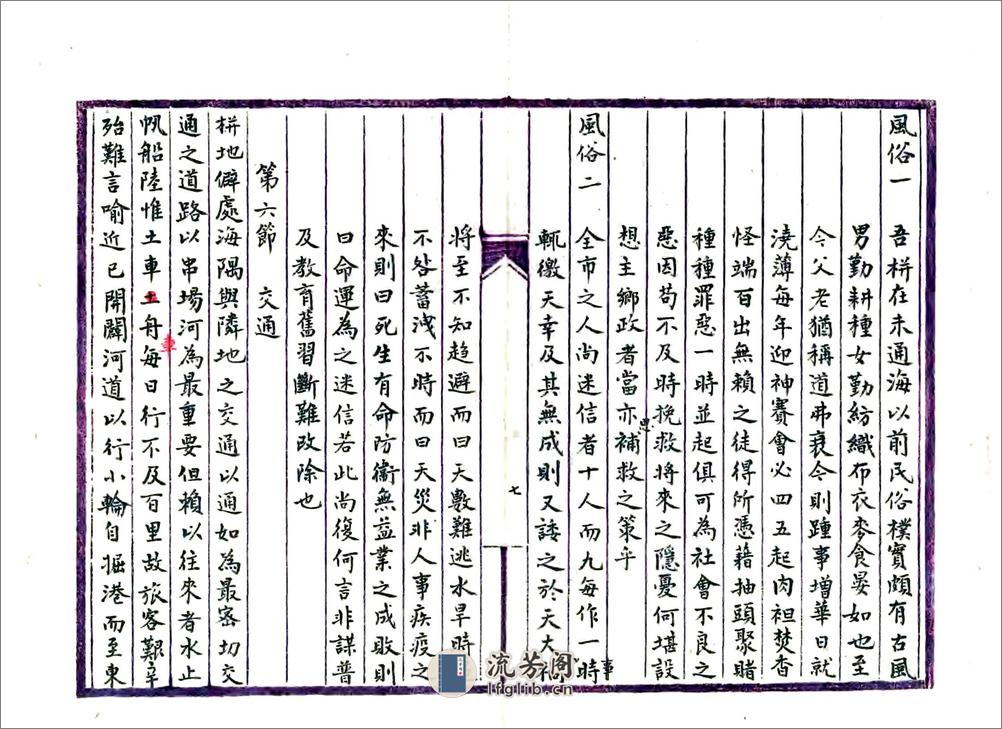 風俗一
吾栟在未通海以前民俗樸實頗有古風
男勤耕種女勤紡織布衣麥食晏如也至
今父老猶稱道弗衰今則踵事增華日就
澆薄每年迎神賽會必四五起肉袒焚香
怪端百出無賴之徒得所憑藉抽頭聚賭
種種罪惡一時並起俱可為社會不良之
惡因苟不及時挽救將來之隱憂何堪設
想主鄉政者當亦思補救之策乎
風俗二
全市之人尚迷信者十人而九每作一事時
輒徼天幸及其無成則又諉之於天大禍
七
將至不知趨避而曰天數難逃水旱時
不咎蓄洩不時而曰天災非人事疾疫之
來則曰死生有命防衛無益業之成敗則
曰命運為之迷信若此尚復何言非謀普
及教育舊習斷難改除也
第六節 交通
栟地僻處海隅與隣地之交通以通如為最密切交
通之道路以串場河為最重要但賴以往來者水止
帆船陸惟土車土車舟每日行不及百里故旅客艱辛
殆難言喻近已開闢河道以行小輪自掘港而至東
流芳閣
lfglib.cn